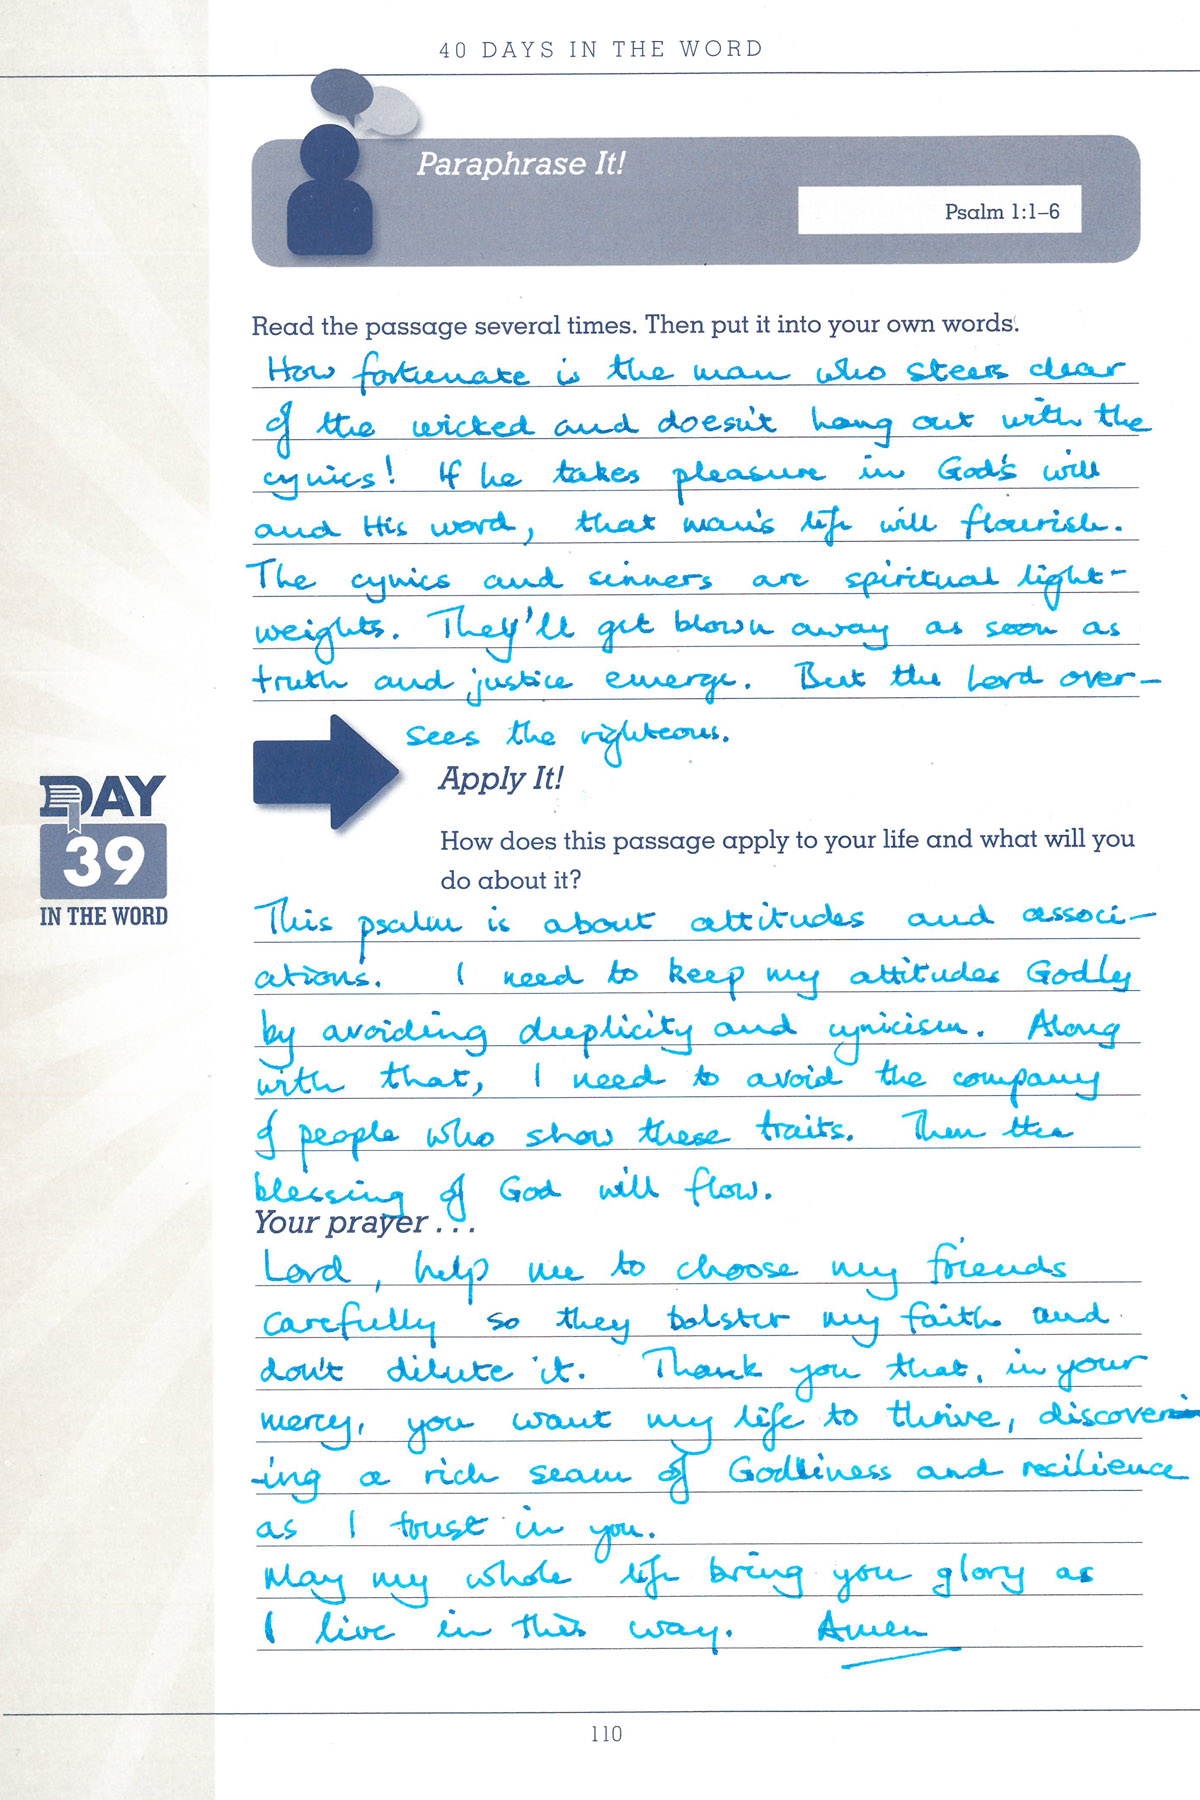 40 DAYS IN THE WORD
Paraphrase It!
Psalm 1:1–6
Read the passage several times. Then put it into your own words.
How fortunate is the man who steers clear
of the wicked and doesn't hang out with the
cynics! If he takes pleasure in God's will
and His word, that man's life will flourish.
The cynics and sinners are spiritual light-
weights. They'll get blown away as soon as
truth and justice emerge. But the Lord over-
sees the righteous.
Apply It!
How does this passage apply to your life and what will you
do about it?
DAY
39
IN THE WORD
This psalm is about attitudes and associ-
ations. I need to keep my attitudes Godly
by avoiding duplicity and cynicism. Along
with that, I need to avoid the company
of people who show these traits. Then the
blessing of God will flow.
Your prayer . . .
Lord, help me to choose my friends
carefully so they bolster my faith and
don't dilute it. Thank you that, in your
mercy, you want my life to thrive, discover
-ing a rich seam of Godliness and resilience
as I trust in you.
May my whole life bring you glory as
I live in this way. Amen
110